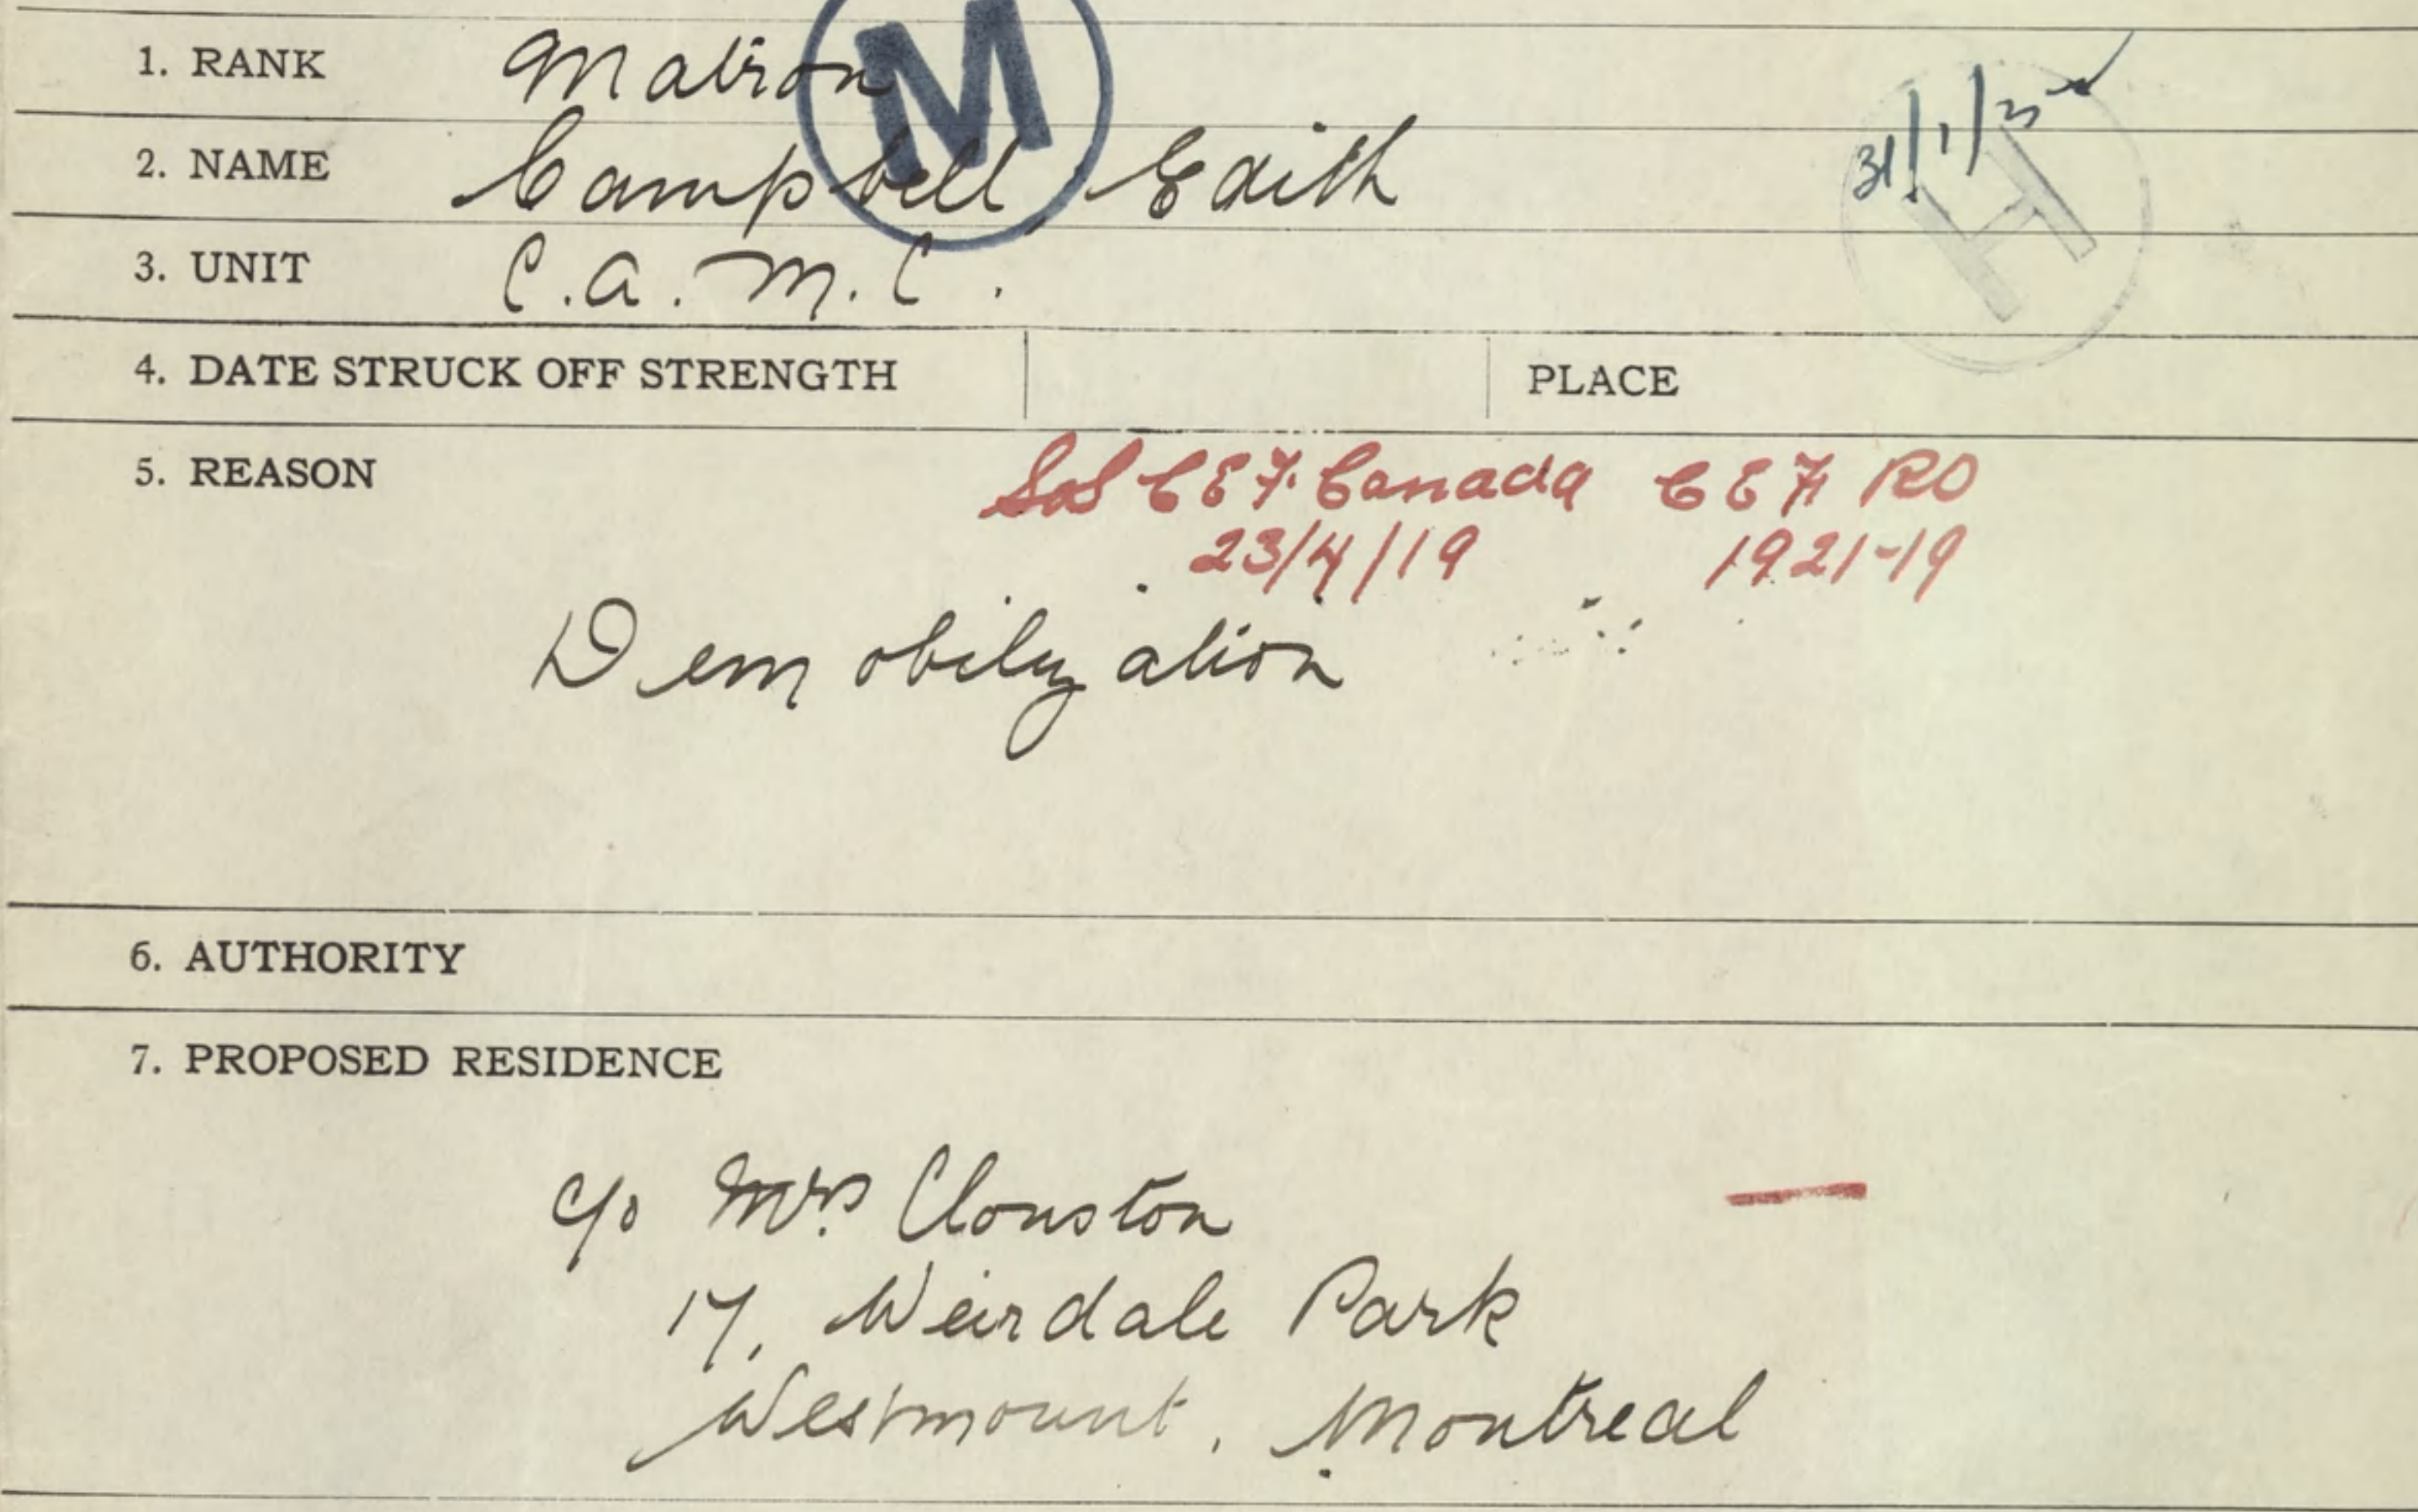 1. RANK Matron
M
31/1/
2. NAME Campbell, Edith
H
3. UNIT C.A.M.C.
4. DATE STRUCK OFF STRENGTH PLACE
5. REASON
SoS CEF. Canada CEF RO
23/4/19 1921-19
Demobilyation
6. AUTHORITY
7. PROPOSED RESIDENCE
c/o Mrs Clouston
17, Weirdale Park
Westmount, Montreal